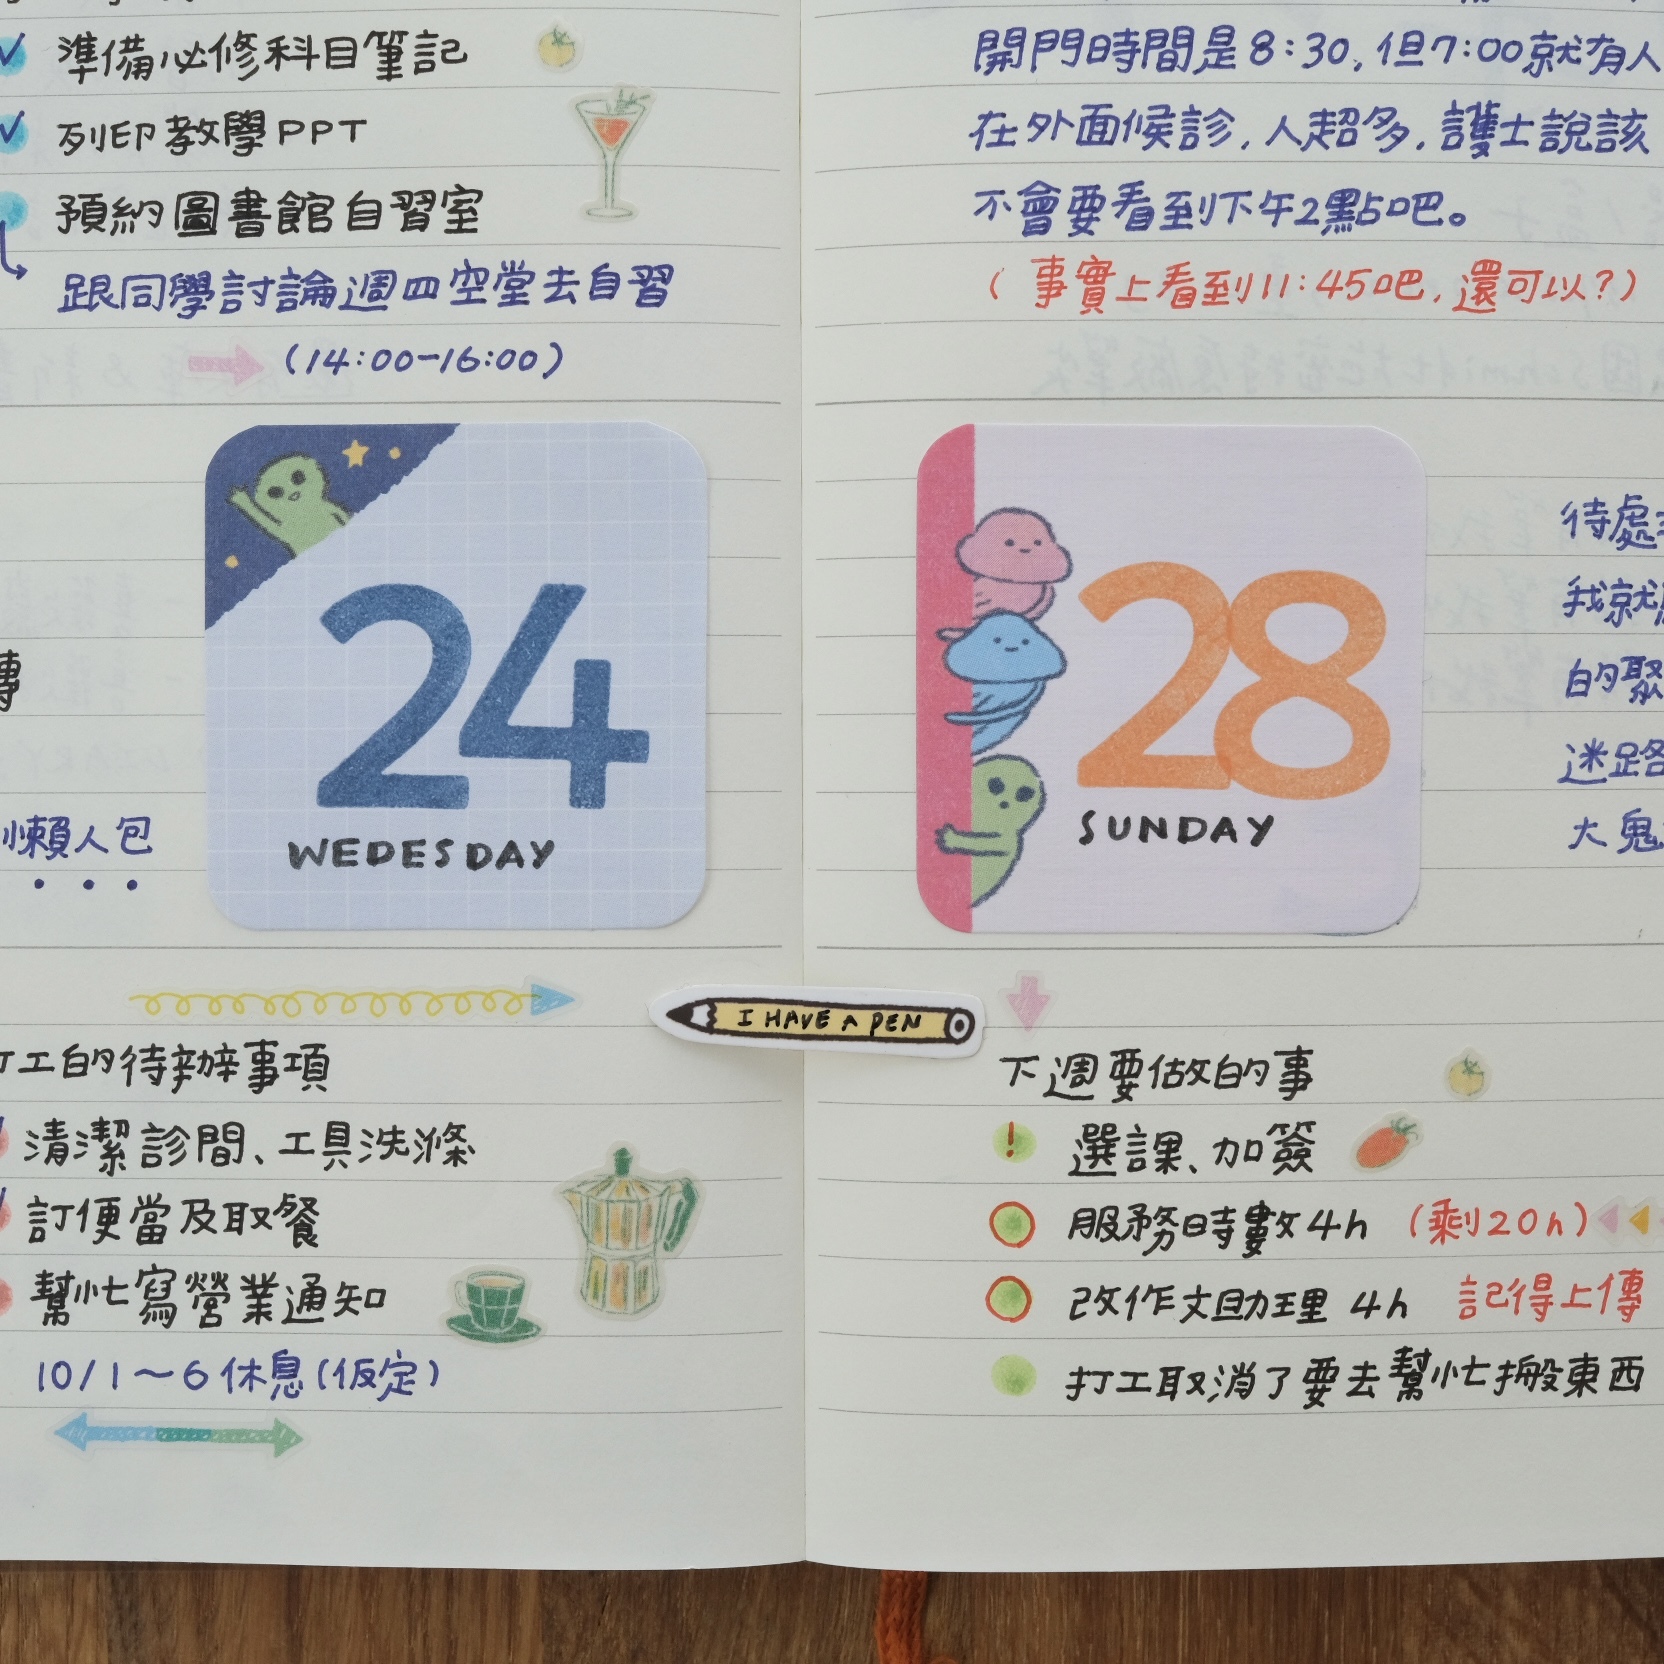 準備必修科目筆記
列印教學PPT
預約圖書館自習室
跟同學討論週四空堂去自習
(14:00-16:00)
傳
懶人包
24
WEDESDAY
打工的待辦事項
清潔診間、工具洗滌
訂便當及取餐
幫忙寫營業通知
10/1~6休息(仮定)
I HAVE A PEN
開門時間是8:30,但7:00就有人
在外面候診,人超多,護士說該
不會要看到下午2點吧。
(事實上看到11:45吧,還可以?)
28
SUNDAY
待處
我就
的聚
迷路
大鬼
下週要做的事
! 選課、加簽
服務時數4h (剩20h)
改作文助理 4h 記得上傳
打工取消了要去幫忙搬東西